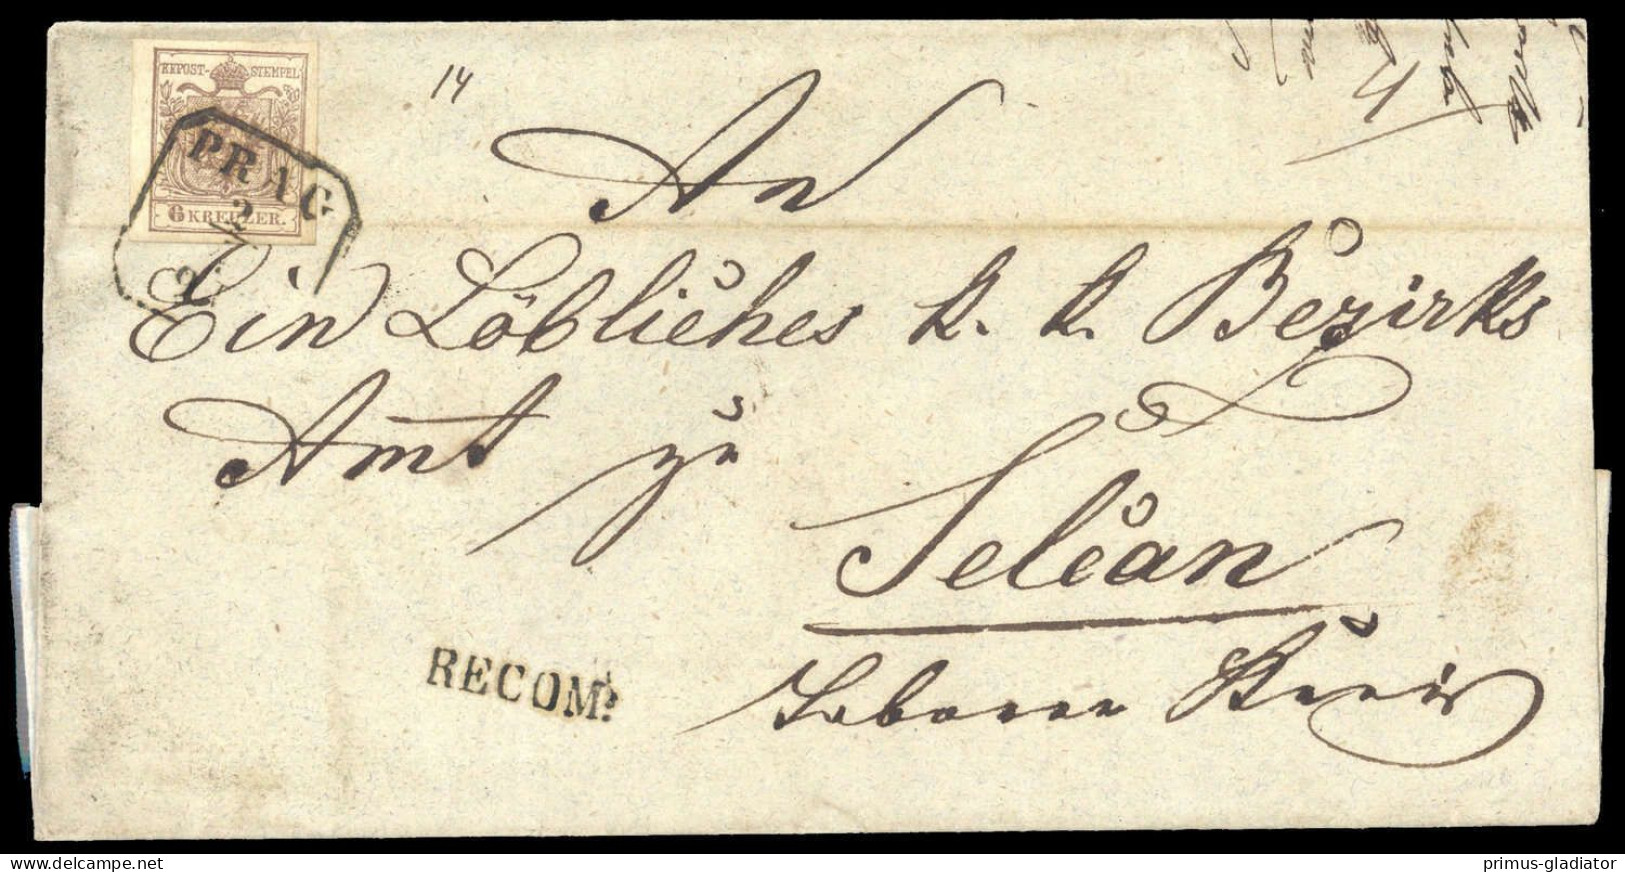 KK POST-STEMPEL
6 KREUZER.
PRAG
2
7
2
14
An
Ein Löbliches k. k. Bezirks
Amt zu
Selčan
Taborer Kreis
RECOM:
www.delcampe.net
primus-gladiator